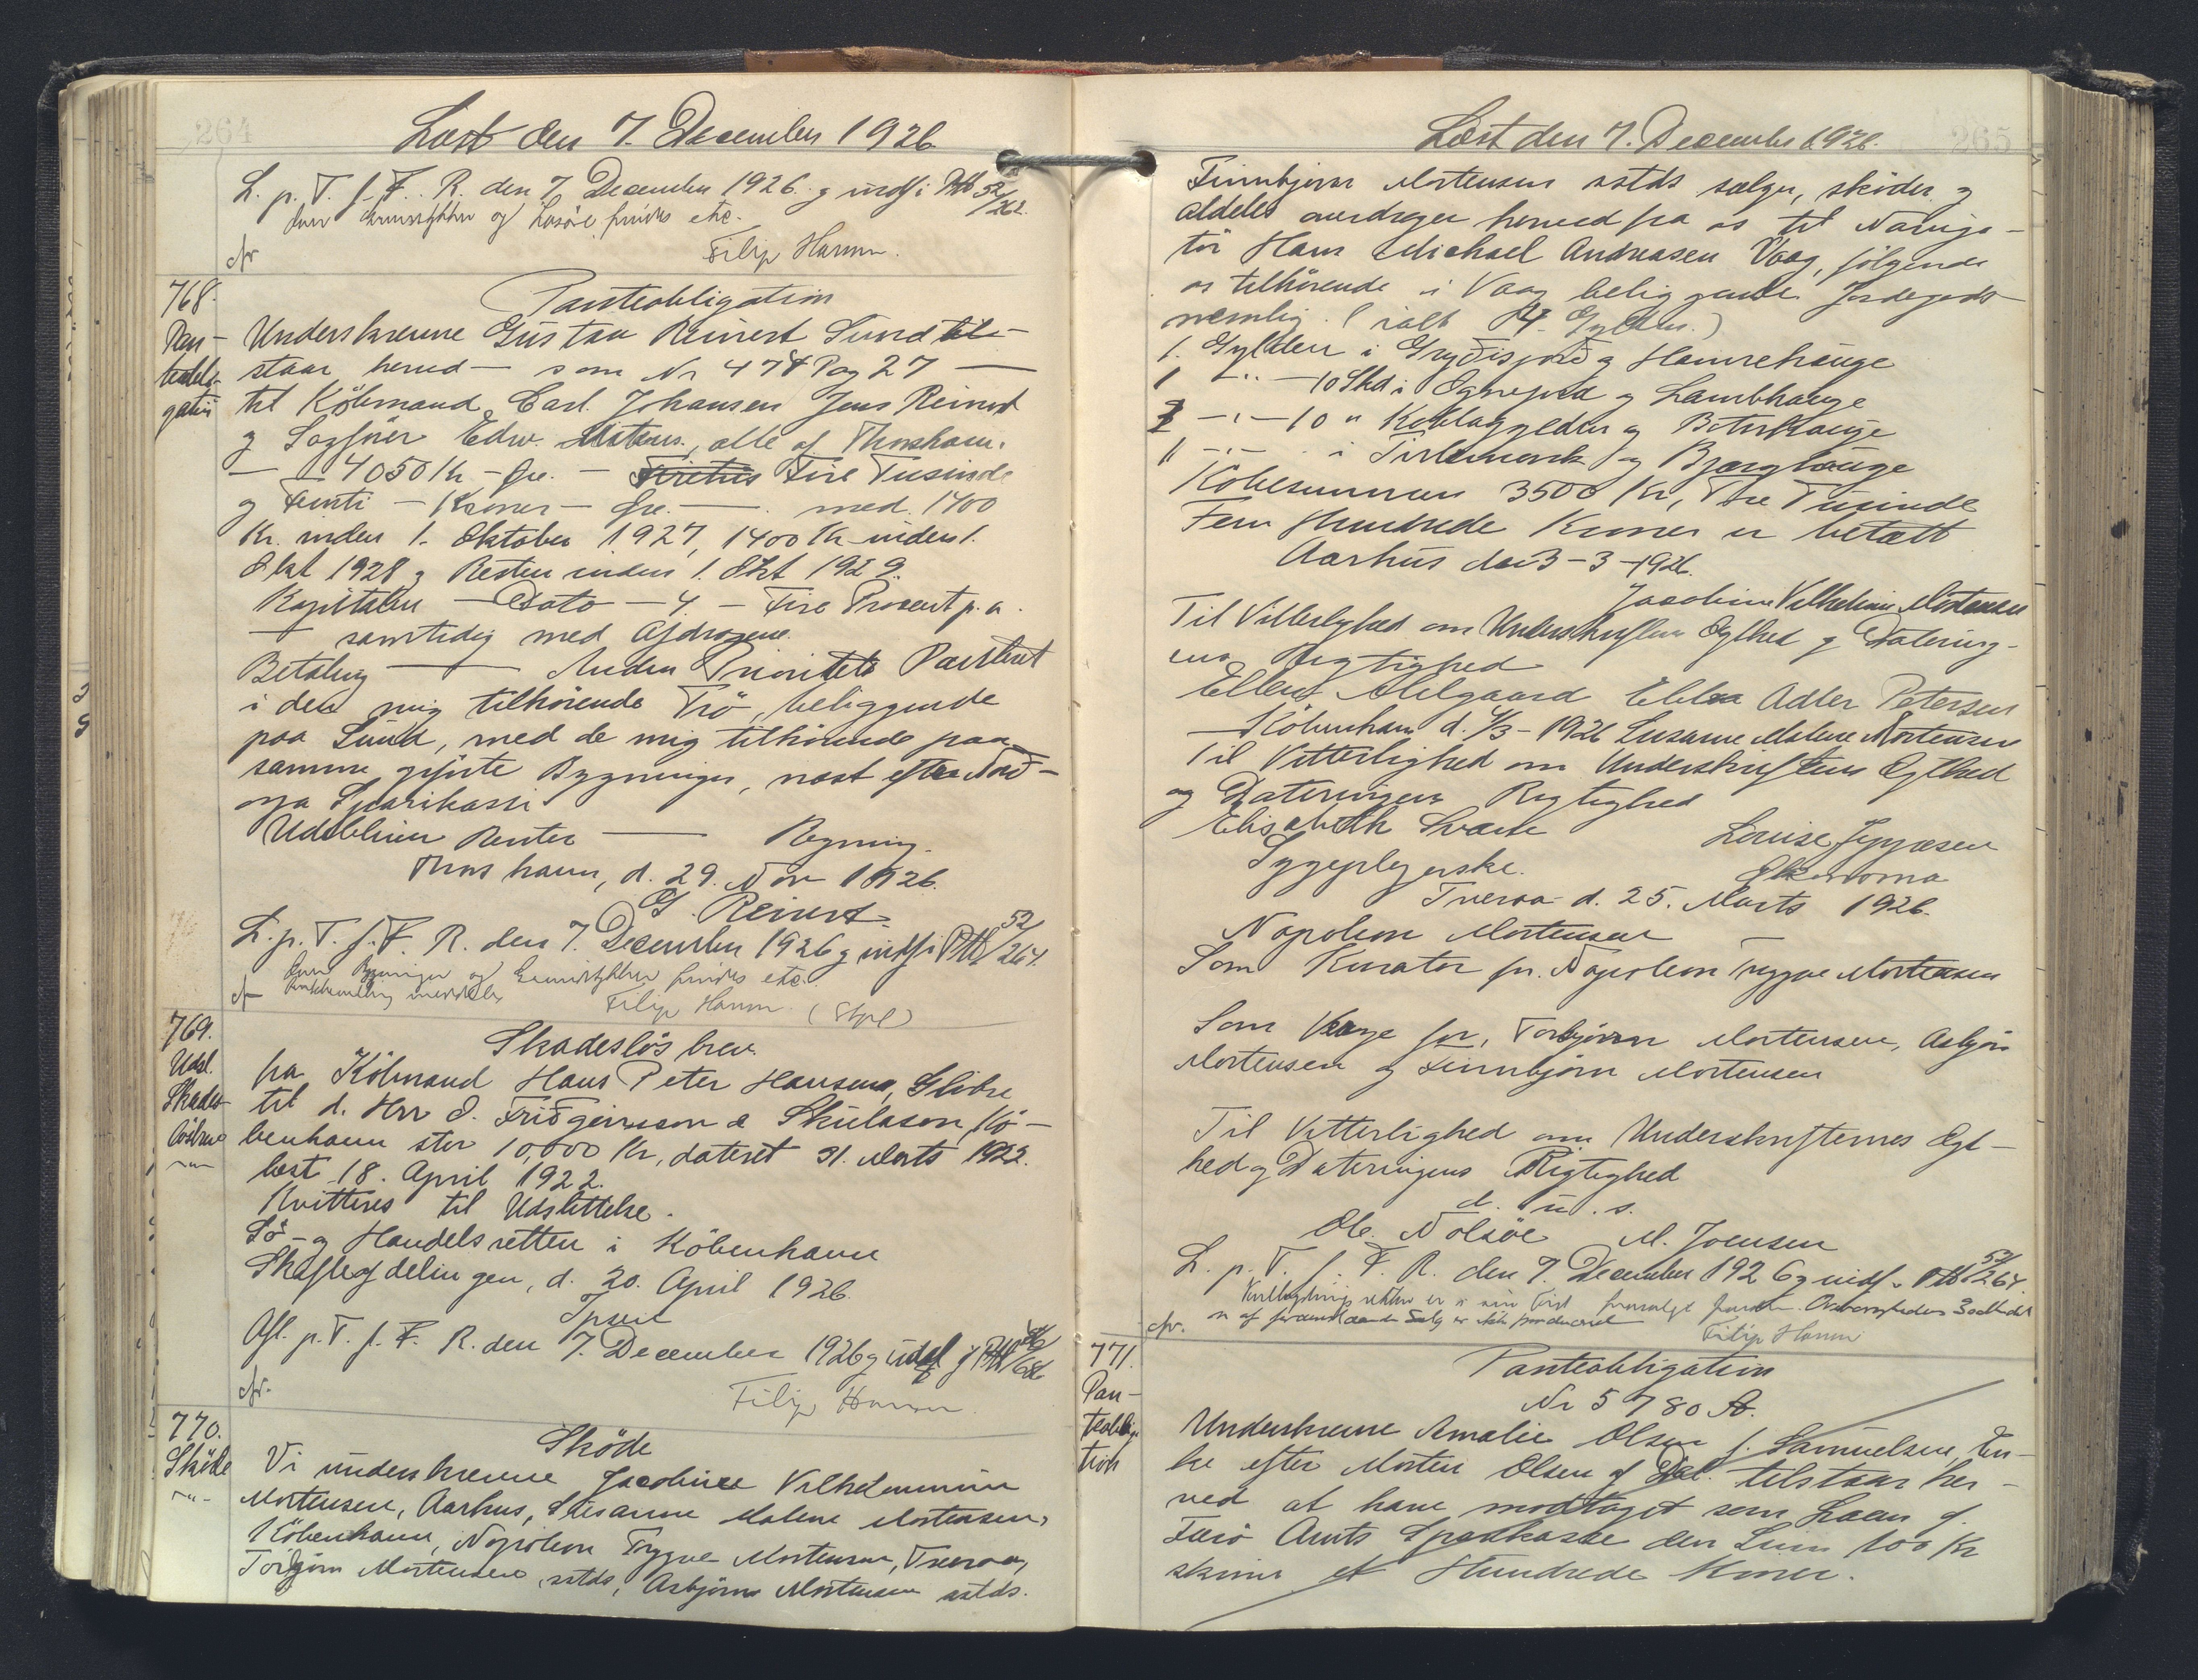 264
Læst den 7. December 1926
L. p. T. f. F. R. den 7. December 1926 g indf i Ptb 52/262.
Filip Hamm.
768.
Pan-
teobli-
gation
Panteobligation
Underskrevne Gustav Reinert Sund til-
staar herved — som Nr 474 Pag 27 —
til Köbmand Carl Johansen Jens Reinert
g Sagförer Edw. , alle af Thorshavn.
— 4050 Kr — Øre. — Fire Tusinde
g Femti — Kroner — Øre. — . med 1400
Kr. inden 1. Oktober 1927, 1400 Kr inden 1.
Okt 1928 g Resten inden 1. Okt 1929.
Kapitalen — Dato — 4. — Fire Procent p. a.
— samtidig med Afdragene.
Betaling — Anden Prioritets Panteret
i den mig tilhörende Trö, beliggende
paa Sund, med de mig tilhörende paa
samme opförte Bygninger, næst efter Nord-
oya Sparikassi
Udebliver Renter — Regning.
Thorshavn, d. 29. Nov 1926.
G. Reinert
L. p. T. f. F. R. den 7. December 1926 g indf i Ptb 52/264.
Om Bygninger og Grundstykker findes etc.
Filip Hamm.
769.
Udsl.
Skades-
lösbrev
Skadeslösbrev
fra Köbmand Hans Peter Hansen, Glibre
til d. Hrr O. Friðgeirsson & Skúlason, Kö-
benhavn stor 10,000 Kr, dateret 31. Marts 1922.
læst 18. April 1922.
Kvitteres til Udslettelse.
Sö- og Handelsretten i Köbenhavn
Skifteafdelingen, d. 20. April 1926.
Afl. p. T. f. F. R. den 7. December 1926 g udsl
Filip Hamm
770.
Sköde
Sköde
Vi underskrevne Jacobine Vilhelmmine
Mortensen, Aarhus, Susanne Malene Mortensen,
Köbenhavn, Napoleon Tryggve Mortensen, Tveraa,
Torbjörn Mortensen sstds, Asbjörn Mortensen sstds.
265
Læst den 7. December 1926.
Finnbjörn Mortensen sstds sælger, sköder g
aldeles overdrager herved fra os til Naviga-
tör Hans Michael Andreasen Vaag, fölgende
os tilhörende i Vaag beliggende Jordegods
nemlig. (ialt Gylden.)
1. Gylden i Gryðisjord g Hamrehauge
1 — " — 10 Skd i Ognejord g Lambhauge
— " — 10 "
Köbesummen 3500 Kr, Tre Tusinde
Fem Hundrede Kroner er betalt
Aarhus den 3-3-1926.
Jacobine Vilhelmine Mortensen
Til Vitterlighed om Underskriftens Ægthed g Datering-
ens Rigtighed
Ellen Ebba Adler Petersen
Köbenhavn d. /3-1926 Susanne Malene Mortensen
Til Vitterlighed om Underskriftens Ægthed
og Dateringens Rigtighed
Elisabeth
Sygeplejerske.
Louise Jeppesen
Økonoma
Tveraa d. 25. Marts 1926.
Napoleon Mortensen
Som Kurator for Napoleon Tryggve Mortensen
Som Værge for, Torbjörn Mortensen, Asbjörn
Mortensen g Finnbjörn Mortensen
Til Vitterlighed om Underskrifternes Ægt-
hed og Dateringens Rigtighed
d. u. s.
Ole Nolsöe M. Joensen
L. p. T. f. F. R. den 7. December 1926 g indf i Ptb 52/264.
Filip Hamm
771.
Pan-
teobliga-
tion
Panteobligation
Nr 5780 A.
Underskrevne Amalie Olsen f. Samuelsen, En-
ke efter Morten Olsen af Dal. tilstaar her-
ved at have modtaget som Laan af
Færö Amts Sparekasse den Sum 100 Kr
skriver et Hundrede Kroner.